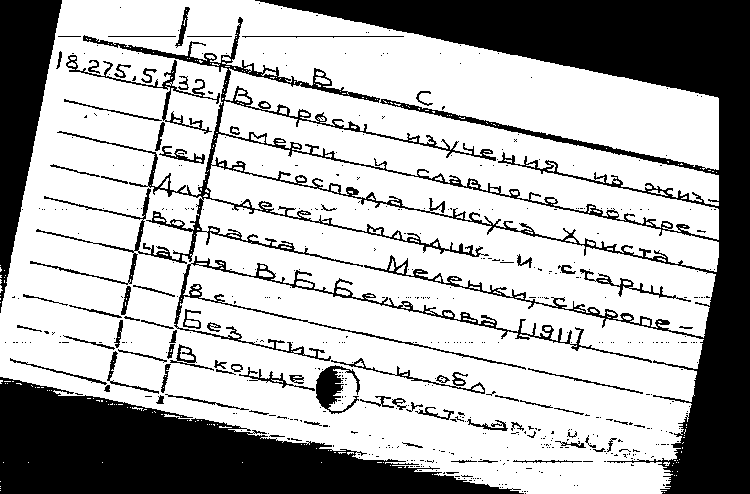 Горин, В. С.
18.275.5.232. Вопросы изучения из жиз-
ни, смерти и славного воскре-
сения господа Иисуса Христа.
Для детей младш. и старш.
возраста. Меленки, скоропе-
чатня В.Б.Белякова, [1911].
8 с.
Без тит. л. и обл.
В конце текста авт.: